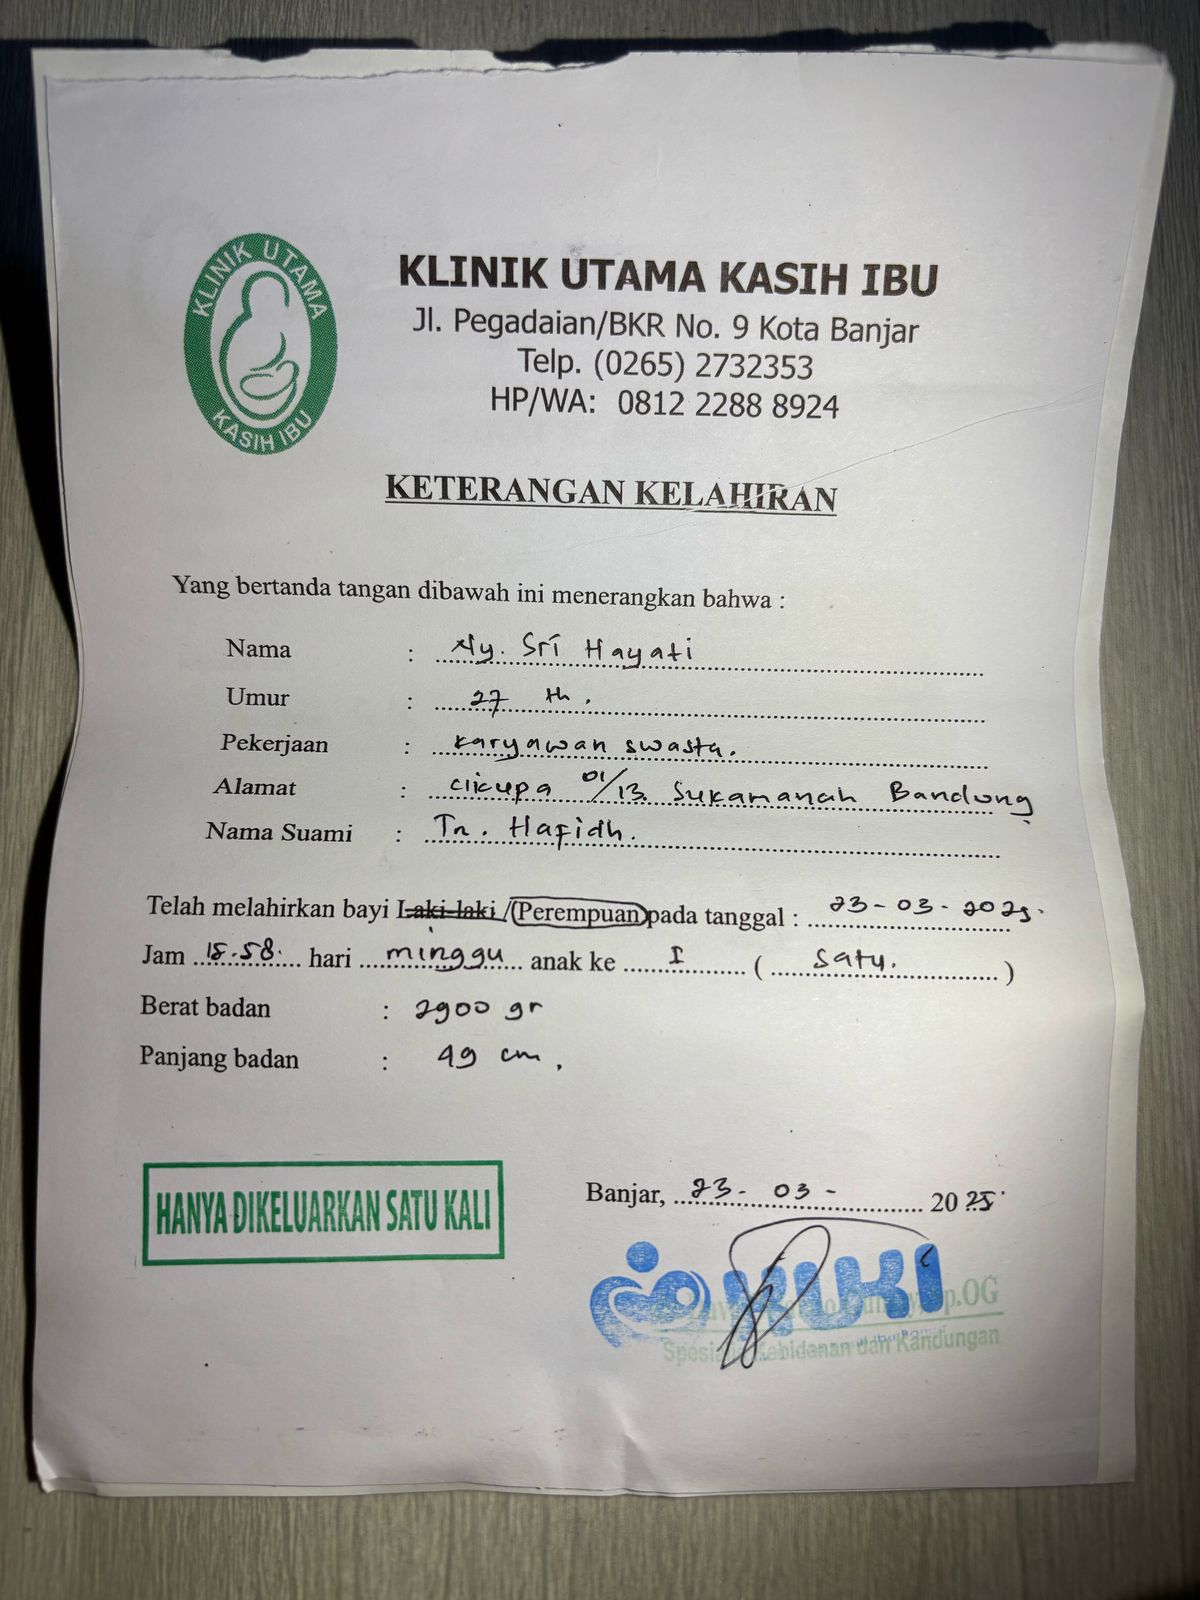 KLINIK UTAMA
KASIH IBU
KLINIK UTAMA KASIH IBU
Jl. Pegadaian/BKR No. 9 Kota Banjar
Telp. (0265) 2732353
HP/WA: 0812 2288 8924
KETERANGAN KELAHIRAN
Yang bertanda tangan dibawah ini menerangkan bahwa :
Nama : Ny. Sri Hayati
Umur : 27 th.
Pekerjaan : karyawan swasta.
Alamat : cicupa 01/13. Sukamanah Bandung
Nama Suami : Tn. Hafidh.
Telah melahirkan bayi Laki-laki / Perempuan pada tanggal : 23-03-2025.
Jam 15.58. hari minggu anak ke I ( satu. )
Berat badan : 2900 gr
Panjang badan : 49 cm.
HANYA DIKELUARKAN SATU KALI
Banjar, 23- 03 - 2025
KUKI
Sp.OG
Spesialis Kebidanan dan Kandungan